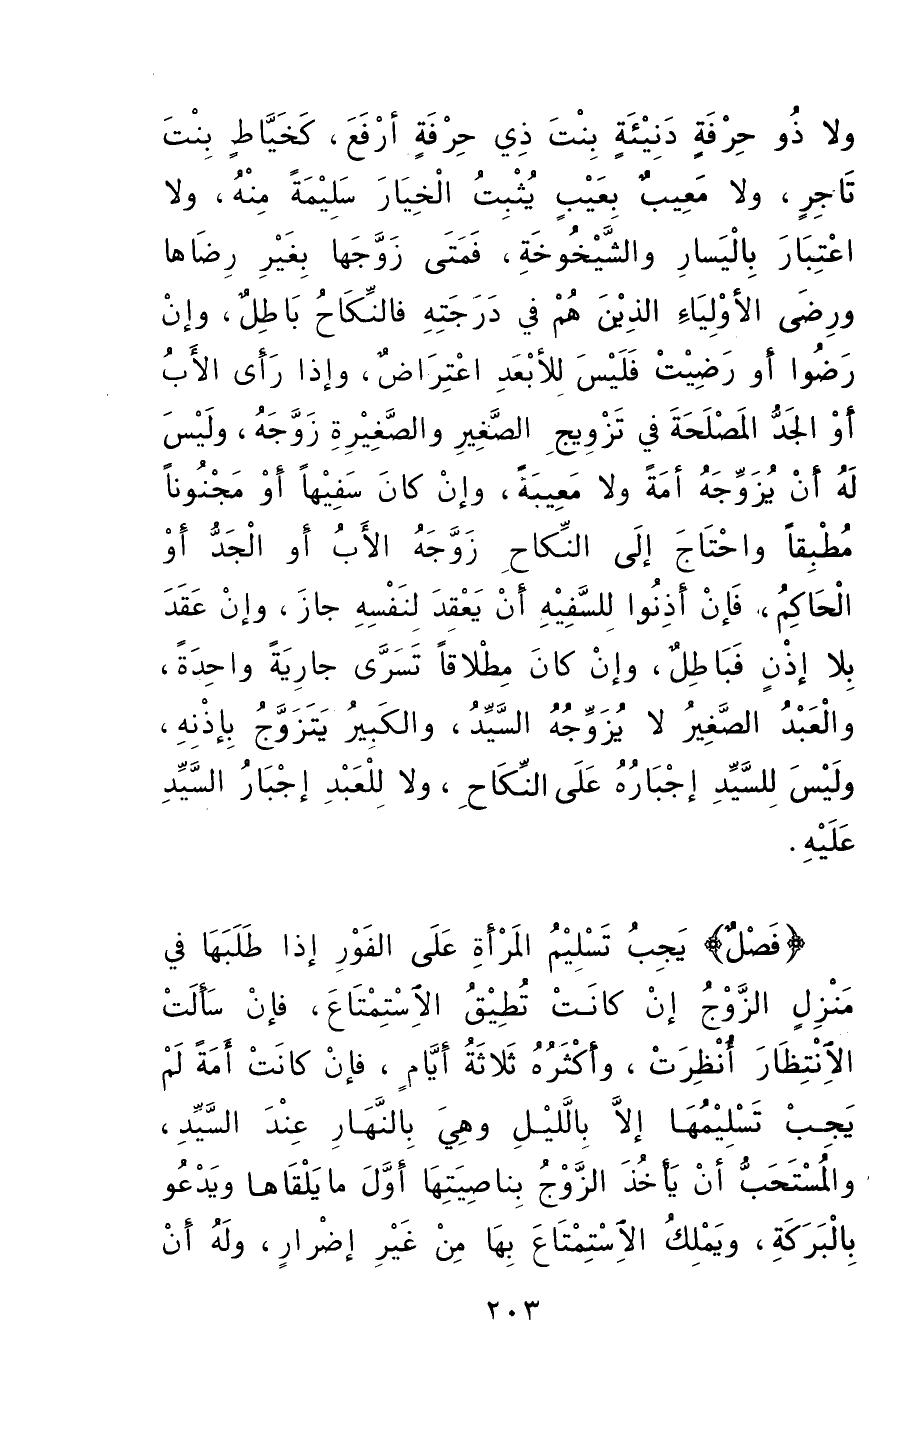 ولا ذُو حِرْفَةٍ دَنِيْئَةٍ بِنْتَ ذِي حِرْفَةٍ أَرْفَعَ، كَخَيَّاطٍ بِنْتَ
تَاجِرٍ، ولا مَعِيبٌ بِعَيْبٍ يُثْبِتُ الْخِيَارَ سَلِيْمَةً مِنْهُ، ولا
اعْتِبَارَ بِالْيَسارِ والشَّيْخُوخَةِ، فَمَتَى زَوَّجَها بِغَيْرِ رِضَاها
ورِضَى الأَوْلِيَاءِ الذِيْنَ هُمْ في دَرَجَتِهِ فالنِّكَاحُ بَاطِلٌ، وإنْ
رَضُوا أو رَضِيَتْ فَلَيْسَ لِلأَبْعَدِ اعْتِرَاضٌ، وإذا رَأى الأَبُ
أَوْ الجَدُّ المَصْلَحَةَ في تَزْوِيجِ الصَّغِيرِ والصَّغِيْرةِ زَوَّجَهُ، ولَيْسَ
لَهُ أَنْ يُزَوِّجَهُ أَمَةً ولا مَعِيبَةً، وإنْ كانَ سَفِيْهاً أَوْ مَجْنُوناً
مُطْبِقاً واحْتَاجَ إلَى النِّكَاحِ زَوَّجَهُ الأَبُ أو الْجَدُّ أَوْ
الْحَاكِمُ، فَإنْ أَذِنُوا لِلسَّفِيْهِ أَنْ يَعْقِدَ لِنَفْسِهِ جازَ، وإنْ عَقَدَ
بِلا إذْنٍ فَبَاطِلٌ، وإنْ كانَ مِطْلاقاً تَسَرَّى جارِيَةً واحِدَةً،
والْعَبْدُ الصَّغِيرُ لا يُزَوِّجُهُ السَّيِّدُ، والكَبِيرُ يَتَزَوَّجُ بِإذْنِهِ،
ولَيْسَ لِلسَّيِّدِ إجْبَارُهُ عَلَى النِّكَاحِ، ولا لِلْعَبْدِ إجْبَارُ السَّيِّدِ
عَلَيْهِ.
﴿فَصْلٌ﴾ يَجِبُ تَسْلِيْمُ المَرْأَةِ عَلَى الفَوْرِ إذا طَلَبَهَا في
مَنْزِلِ الزَّوْجُ إنْ كانَتْ تُطِيْقُ الاِسْتِمْتَاعَ، فإنْ سَأَلَتْ
الاِنْتِظَارَ أُنْظِرَتْ، وأَكْثَرُهُ ثَلاثَةُ أَيَّامٍ، فإنْ كانَتْ أَمَةً لَمْ
يَجِبْ تَسْلِيْمُهَا إلاَّ بِاللَّيْلِ وهِيَ بِالنَّهَارِ عِنْدَ السَّيِّدِ،
والمُسْتَحَبُّ أَنْ يَأْخُذَ الزَّوْجُ بِناصِيَتِهَا أَوَّلَ ما يَلْقَاها ويَدْعُو
بِالْبَرَكَةِ، ويَمْلِكُ الاِسْتِمْتَاعَ بِهَا مِنْ غَيْرِ إضْرارٍ، ولَهُ أَنْ
٢٠٣